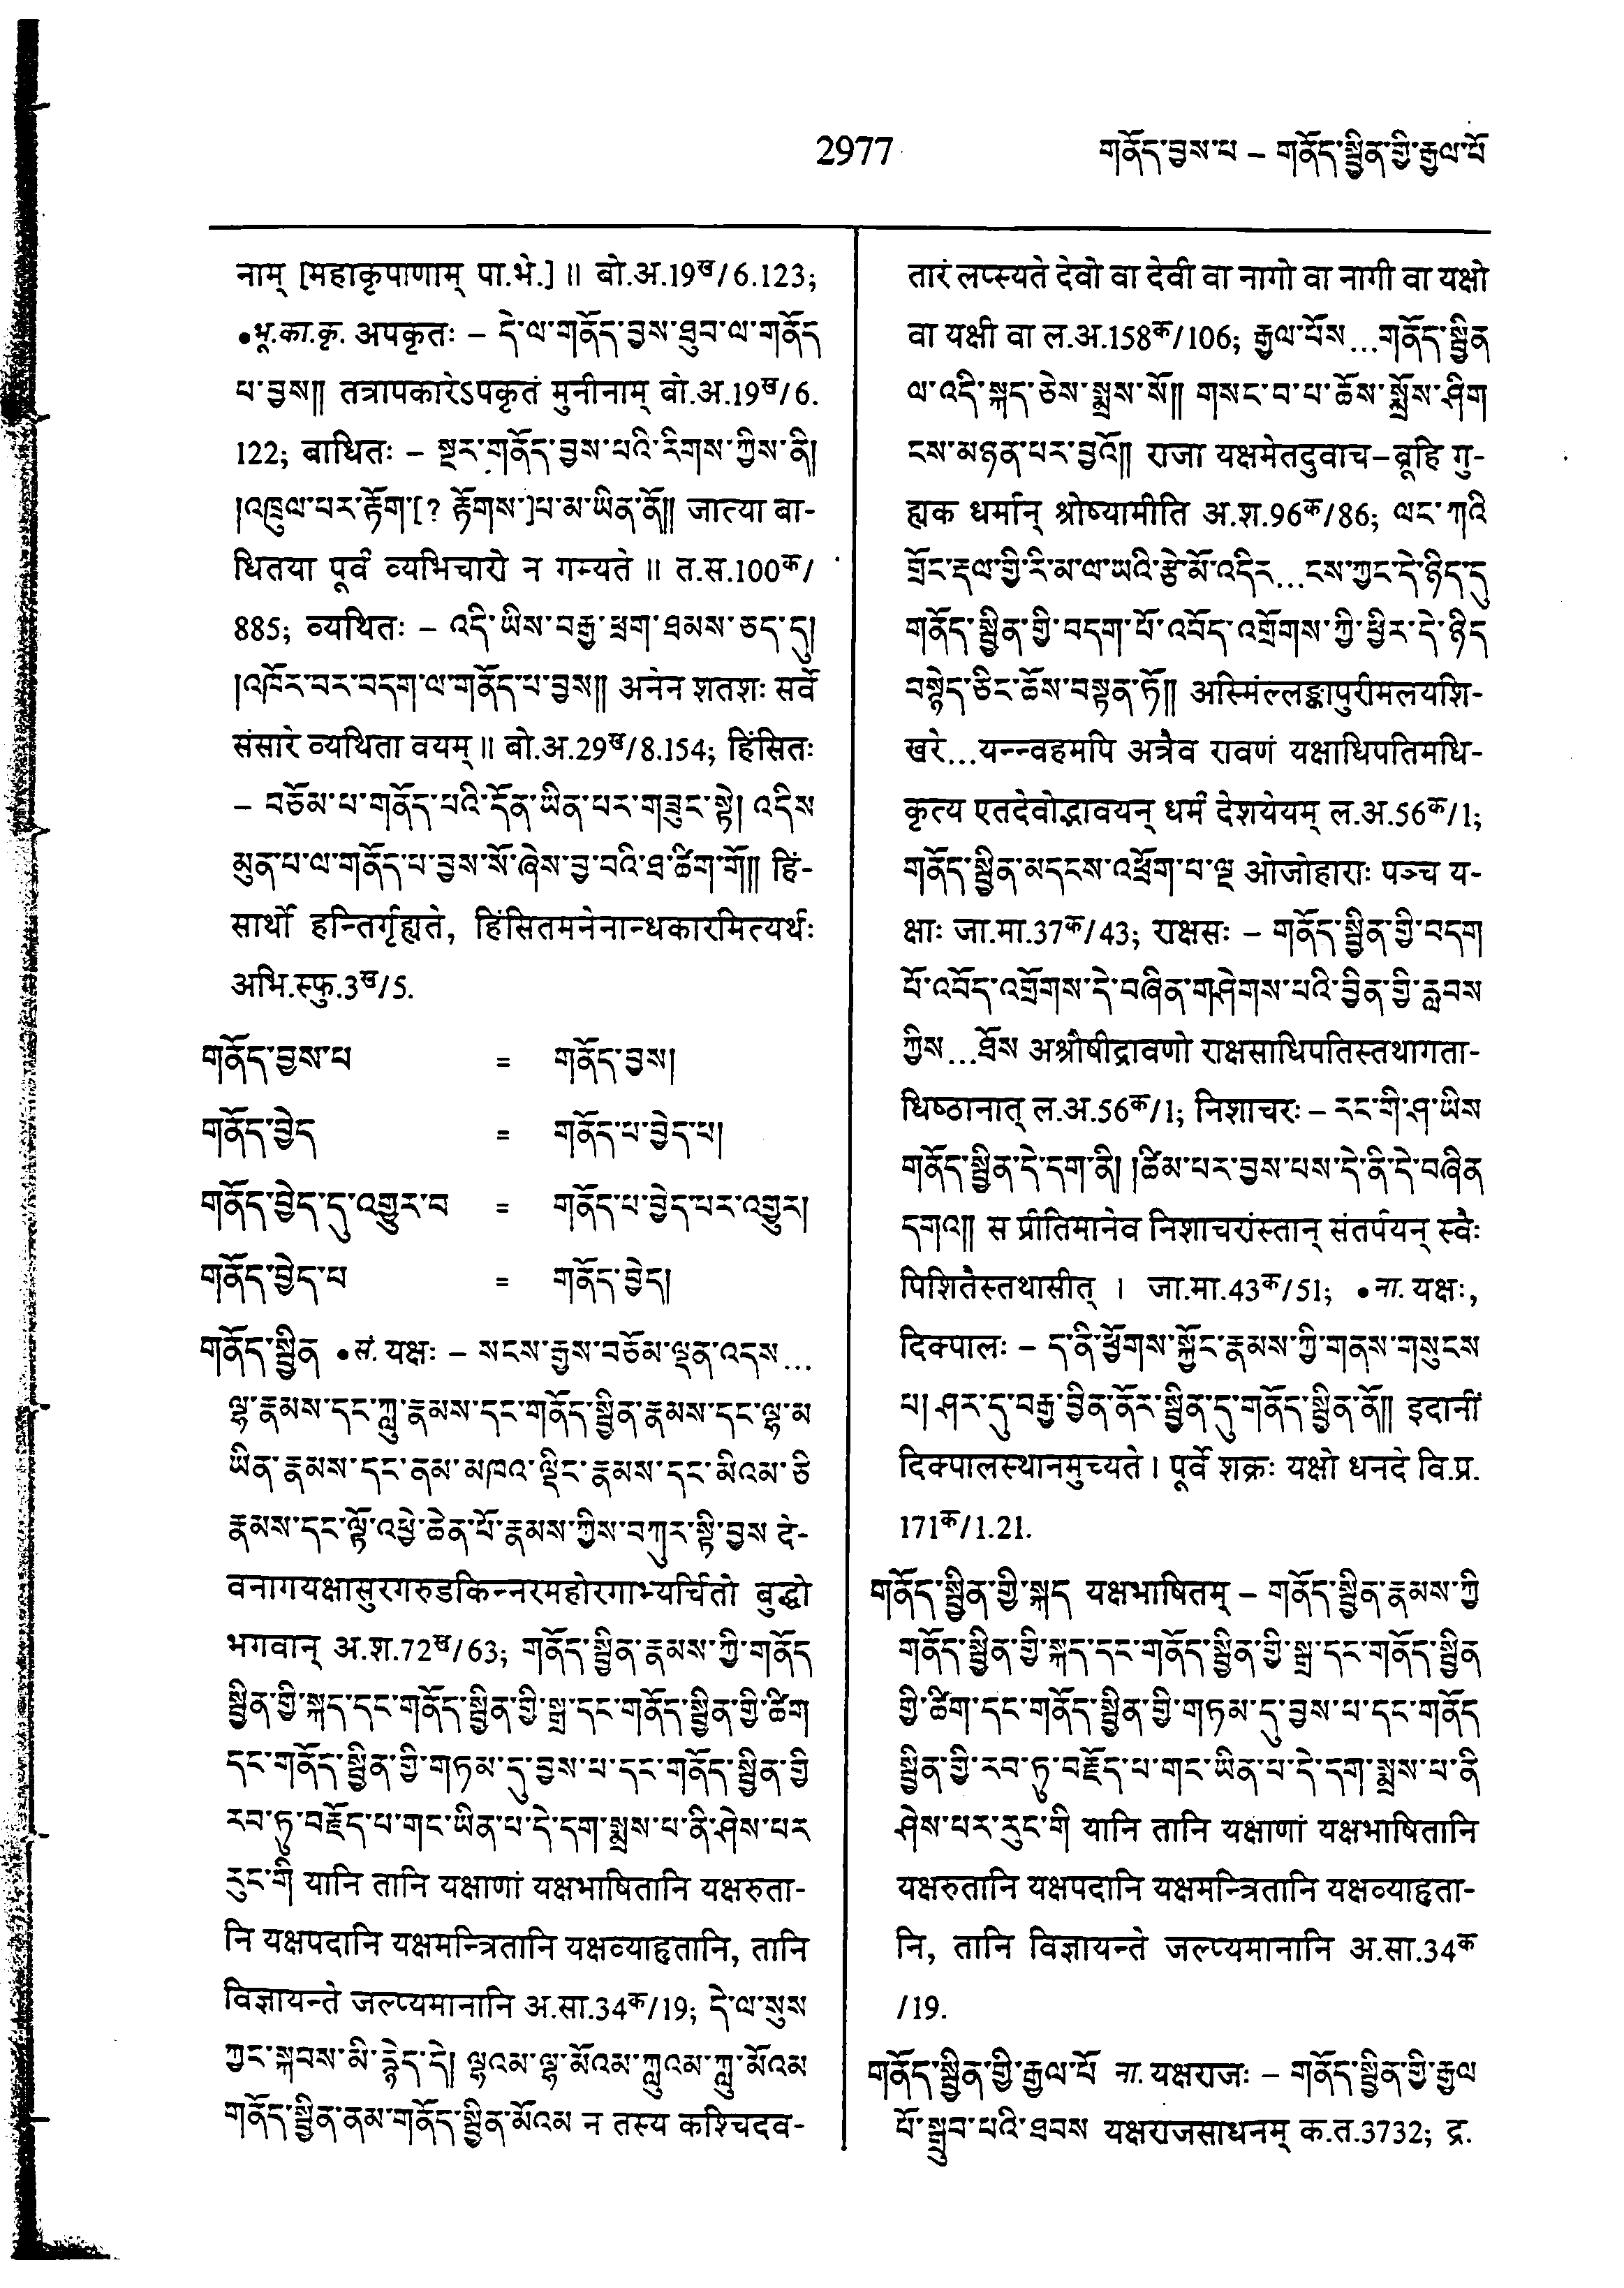 2977
གནོད་བྱས་པ – གནོད་སྦྱིན་གྱི་རྒྱལ་པོ
नाम् [महाकृपाणाम् पा.भे.] ॥ बो.अ.19ख/6.123;
•भू.का.कृ. अपकृतः – དེ་ལ་གནོད་བྱས་ཐུབ་ལ་གནོད
པ་བྱས༎ तत्रापकारेऽपकृतं मुनीनाम् बो.अ.19ख/6.
122; बाधितः – སྔར་གནོད་བྱས་པའི་རིགས་ཀྱིས་ནི།
།འཁྲུལ་པར་རྟོག་[? རྟོགས་]པ་མ་ཡིན་ནོ༎ जात्या बा-
धितया पूर्वं व्यभिचारो न गम्यते ॥ त.स.100क/
885; व्यथितः – འདི་ཡིས་བརྒྱ་ཕྲག་ཐམས་ཅད་དུ།
།འཁོར་བར་བདག་ལ་གནོད་པ་བྱས༎ अनेन शतशः सर्वे
संसारे व्यथिता वयम् ॥ बो.अ.29ख/8.154; हिंसितः
– བཅོམ་པ་གནོད་པའི་དོན་ཡིན་པར་གཟུང་སྟེ། འདིས
མུན་པ་ལ་གནོད་པ་བྱས་སོ་ཞེས་བྱ་བའི་ཐ་ཚིག་གོ༎ हिं-
सार्थो हन्तिर्गृह्यते, हिंसितमनेनान्धकारमित्यर्थः
अभि.स्फु.3ख/5.
གནོད་བྱས་པ = གནོད་བྱས།
གནོད་བྱེད = གནོད་པ་བྱེད་པ།
གནོད་བྱེད་དུ་འགྱུར་བ = གནོད་པ་བྱེད་པར་འགྱུར།
གནོད་བྱེད་པ = གནོད་བྱེད།
གནོད་སྦྱིན •सं. यक्षः – སངས་རྒྱས་བཅོམ་ལྡན་འདས…
ལྷ་རྣམས་དང་ཀླུ་རྣམས་དང་གནོད་སྦྱིན་རྣམས་དང་ལྷ་མ
ཡིན་རྣམས་དང་ནམ་མཁའ་ལྡིང་རྣམས་དང་མིའམ་ཅི
རྣམས་དང་ལྟོ་འཕྱེ་ཆེན་པོ་རྣམས་ཀྱིས་བཀུར་སྟི་བྱས दे-
वनागयक्षासुरगरुडकिन्नरमहोरगाभ्यर्चितो बुद्धो
भगवान् अ.श.72ख/63; གནོད་སྦྱིན་རྣམས་ཀྱི་གནོད
སྦྱིན་གྱི་སྐད་དང་གནོད་སྦྱིན་གྱི་སྒྲ་དང་གནོད་སྦྱིན་གྱི་ཚིག
དང་གནོད་སྦྱིན་གྱི་གཏམ་དུ་བྱས་པ་དང་གནོད་སྦྱིན་གྱི
རབ་ཏུ་བརྗོད་པ་གང་ཡིན་པ་དེ་དག་སྨྲས་པ་ནི་ཤེས་པར
རུང་གི यानि तानि यक्षाणां यक्षभाषितानि यक्षरुता-
नि यक्षपदानि यक्षमन्त्रितानि यक्षव्याहृतानि, तानि
विज्ञायन्ते जल्प्यमानानि अ.सा.34क/19; དེ་ལ་སུས
ཀྱང་སྐབས་མི་རྙེད་དེ། ལྷའམ་ལྷ་མོའམ་ཀླུའམ་ཀླུ་མོའམ
གནོད་སྦྱིན་ནམ་གནོད་སྦྱིན་མོའམ न तस्य कश्चिदव-
तारं लप्स्यते देवो वा देवी वा नागो वा नागी वा यक्षो
वा यक्षी वा ल.अ.158क/106; རྒྱལ་པོས…གནོད་སྦྱིན
ལ་འདི་སྐད་ཅེས་སྨྲས་སོ༎ གསང་བ་པ་ཆོས་སྨྲོས་ཤིག
ངས་མཉན་པར་བྱའོ༎ राजा यक्षमेतदुवाच–ब्रूहि गु-
ह्यक धर्मान् श्रोष्यामीति अ.श.96क/86; ལང་ཀའི
གྲོང་རྡལ་གྱི་རི་མ་ལ་ཡའི་རྩེ་མོ་འདིར…ངས་ཀྱང་དེ་ཉིད་དུ
གནོད་སྦྱིན་གྱི་བདག་པོ་འབོད་འགྲོགས་ཀྱི་ཕྱིར་དེ་ཉིད
བསྙེད་ཅིང་ཆོས་བསྟན་ཏོ༎ अस्मिंल्लङ्कापुरीमलयशि-
खरे…यन्न्वहमपि अत्रैव रावणं यक्षाधिपतिमधि-
कृत्य एतदेवोद्भावयन् धर्मं देशयेयम् ल.अ.56क/1;
གནོད་སྦྱིན་མདངས་འཕྲོག་པ་ལྔ ओजोहाराः पञ्च य-
क्षाः जा.मा.37क/43; राक्षसः – གནོད་སྦྱིན་གྱི་བདག
པོ་འབོད་འགྲོགས་དེ་བཞིན་གཤེགས་པའི་བྱིན་གྱི་རླབས
ཀྱིས…ཐོས अश्रौषीद्रावणो राक्षसाधिपतिस्तथागता-
धिष्ठानात् ल.अ.56क/1; निशाचरः – རང་གི་ཤ་ཡིས
གནོད་སྦྱིན་དེ་དག་ནི། །ཚིམ་པར་བྱས་པས་དེ་ནི་དེ་བཞིན
དགའ༎ स प्रीतिमानेव निशाचरांस्तान् संतर्पयन् स्वैः
पिशितैस्तथासीत् । जा.मा.43क/51; •ना. यक्षः,
दिक्पालः – ད་ནི་ཕྱོགས་སྐྱོང་རྣམས་ཀྱི་གནས་གསུངས
པ། ཤར་དུ་བརྒྱ་བྱིན་ནོར་སྦྱིན་དུ་གནོད་སྦྱིན་ནོ༎ इदानीं
दिक्पालस्थानमुच्यते। पूर्वे शक्रः यक्षो धनदे वि.प्र.
171क/1.21.
གནོད་སྦྱིན་གྱི་སྐད यक्षभाषितम् – གནོད་སྦྱིན་རྣམས་ཀྱི
གནོད་སྦྱིན་གྱི་སྐད་དང་གནོད་སྦྱིན་གྱི་སྒྲ་དང་གནོད་སྦྱིན
གྱི་ཚིག་དང་གནོད་སྦྱིན་གྱི་གཏམ་དུ་བྱས་པ་དང་གནོད
སྦྱིན་གྱི་རབ་ཏུ་བརྗོད་པ་གང་ཡིན་པ་དེ་དག་སྨྲས་པ་ནི
ཤེས་པར་རུང་གི यानि तानि यक्षाणां यक्षभाषितानि
यक्षरुतानि यक्षपदानि यक्षमन्त्रितानि यक्षव्याहृता-
नि, तानि विज्ञायन्ते जल्प्यमानानि अ.सा.34क
/19.
གནོད་སྦྱིན་གྱི་རྒྱལ་པོ ना. यक्षराजः – གནོད་སྦྱིན་གྱི་རྒྱལ
པོ་སྒྲུབ་པའི་ཐབས यक्षराजसाधनम् क.त.3732; द्र.